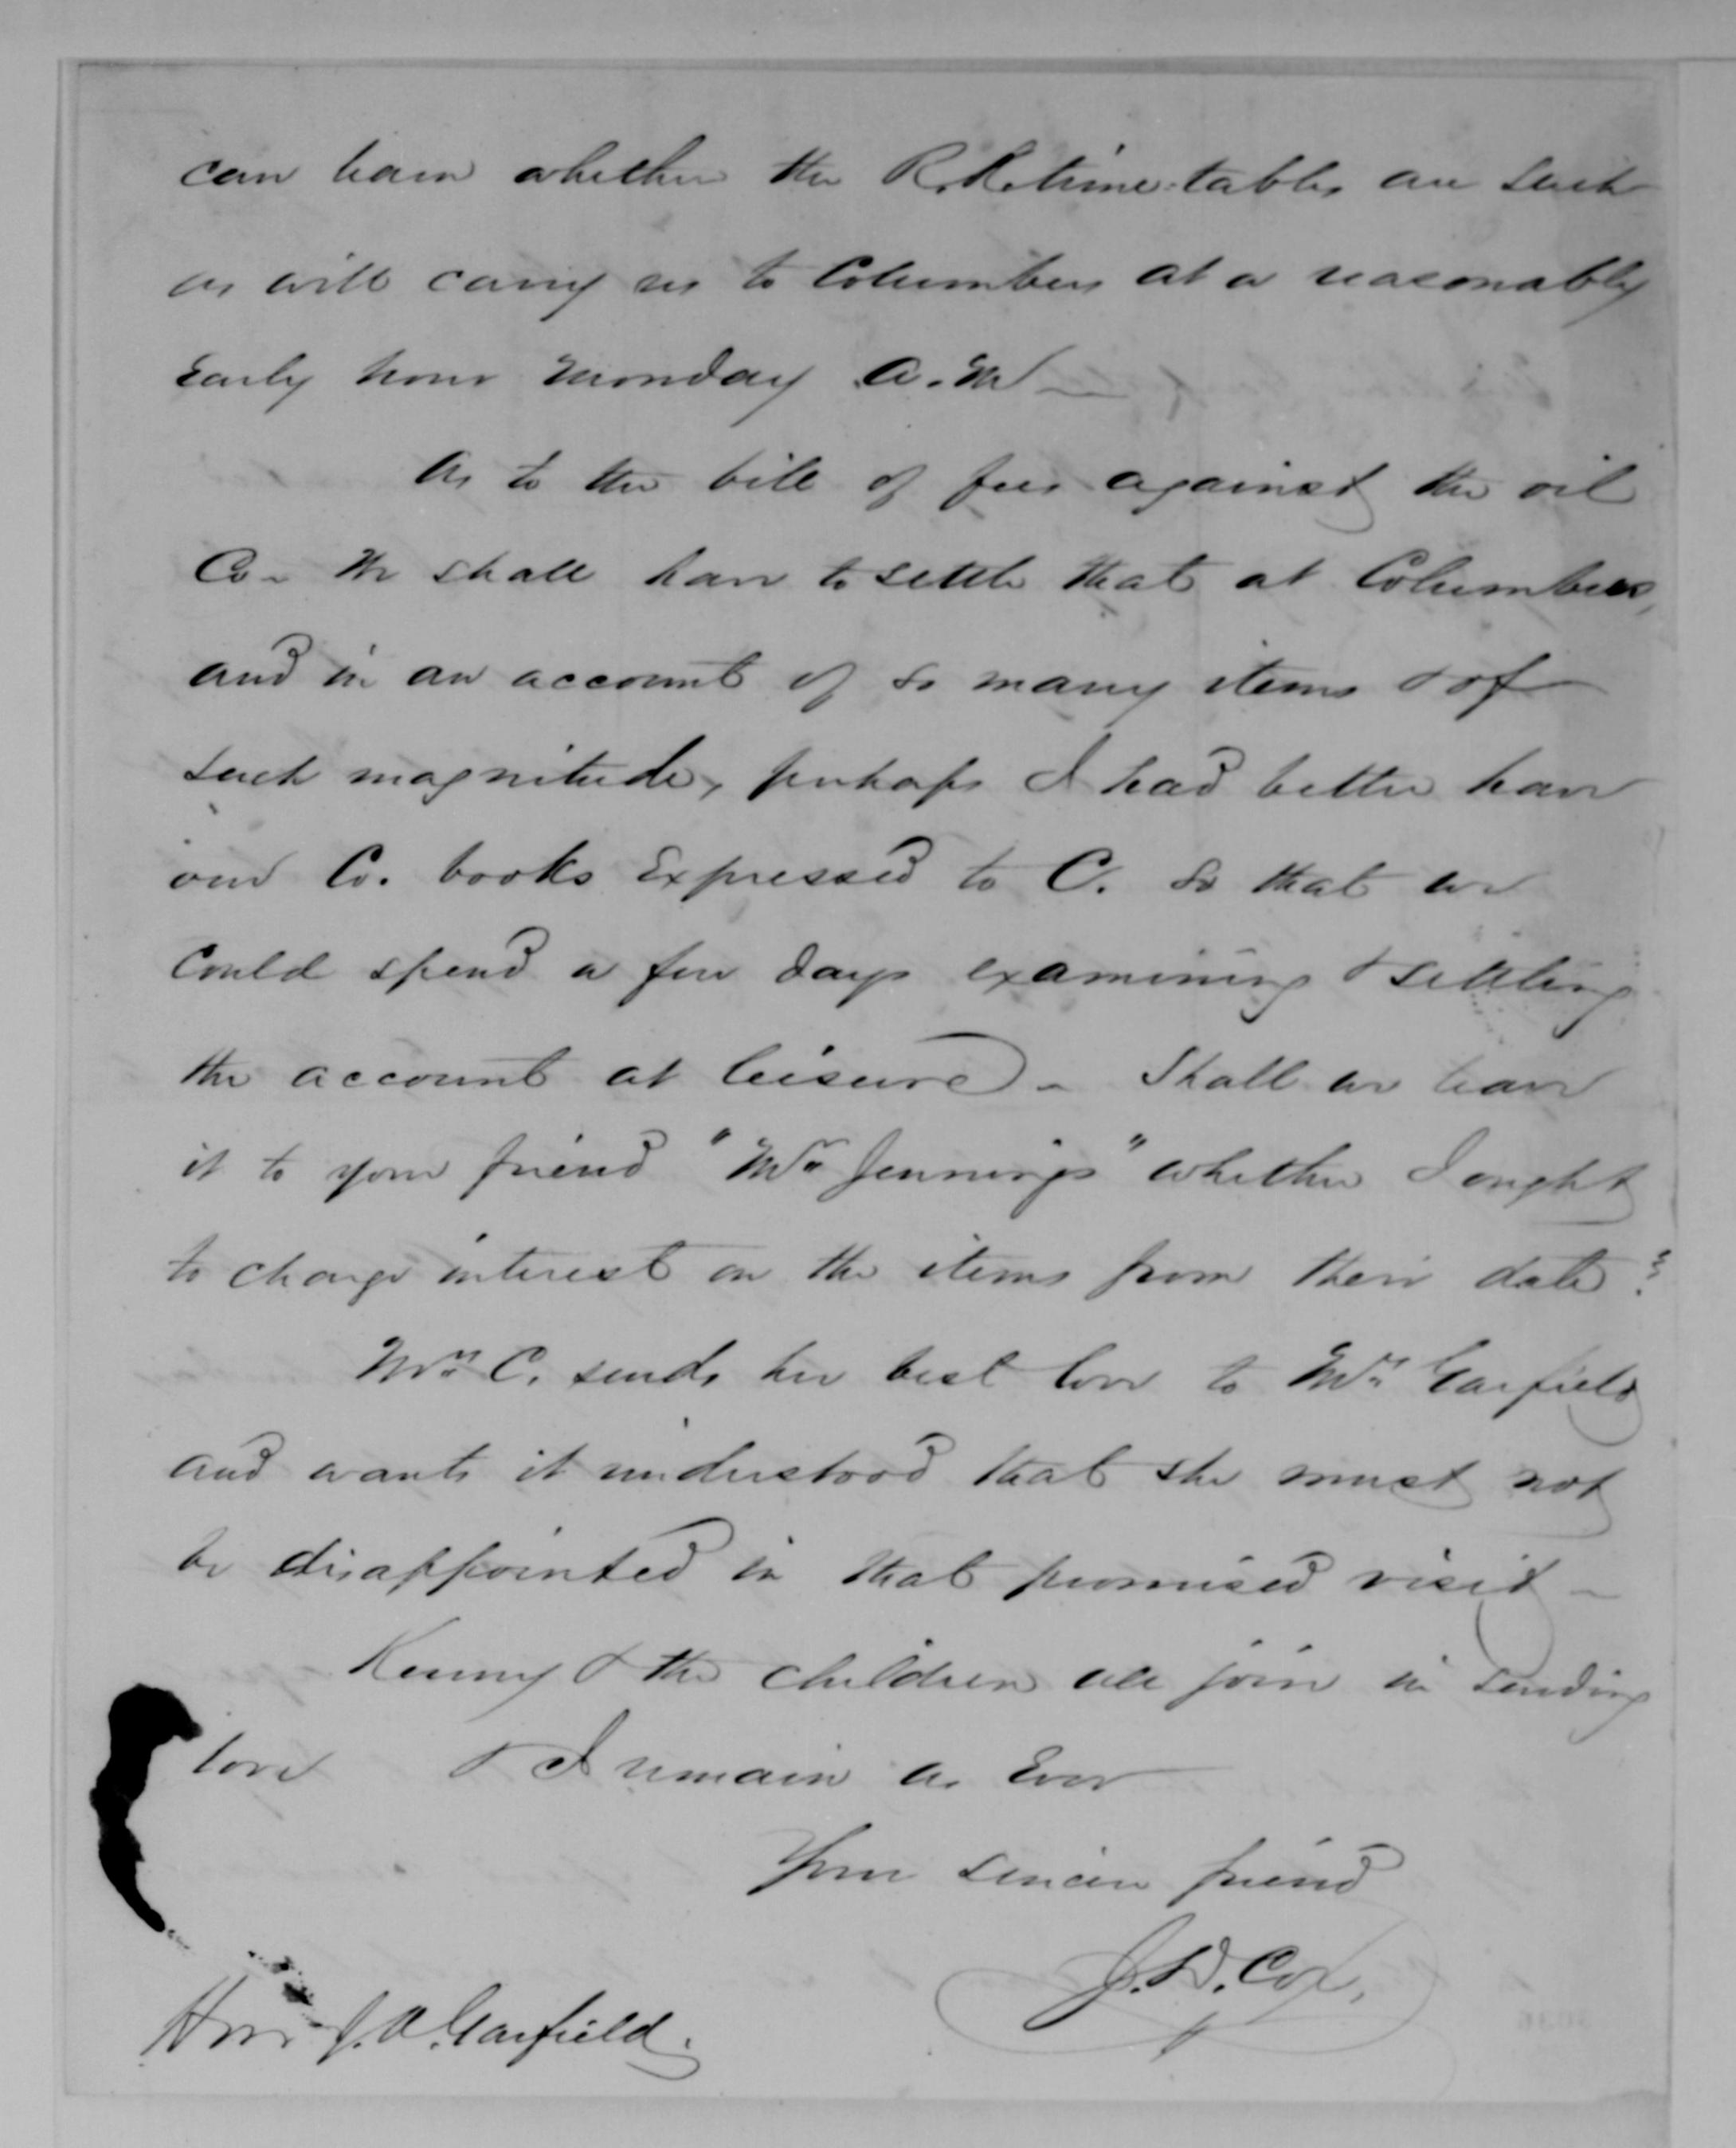 can learn whether the R.R. time-tables are such
as will carry us to Columbus at a reasonably
early hour Monday A.M—
As to the bill of fees against the oil
Co— We shall have to settle that at Columbus,
and in an account of so many items & of
such magnitude, perhaps I had better have
our Co. books expressed to C. so that we
could spend a few days examining & settling
the account at leisure— Shall we leave
it to your friend "Mr Jennings" whether I ought
to charge interest on the items from their date?
Mrs C. sends her best love to Mrs Garfield
and wants it understood that she must not
be disappointed in that promised visit—
& the children all join in sending
love & I remain as Ever
Your sincere friend
J. D. Cox,
Hon. J. A. Garfield.